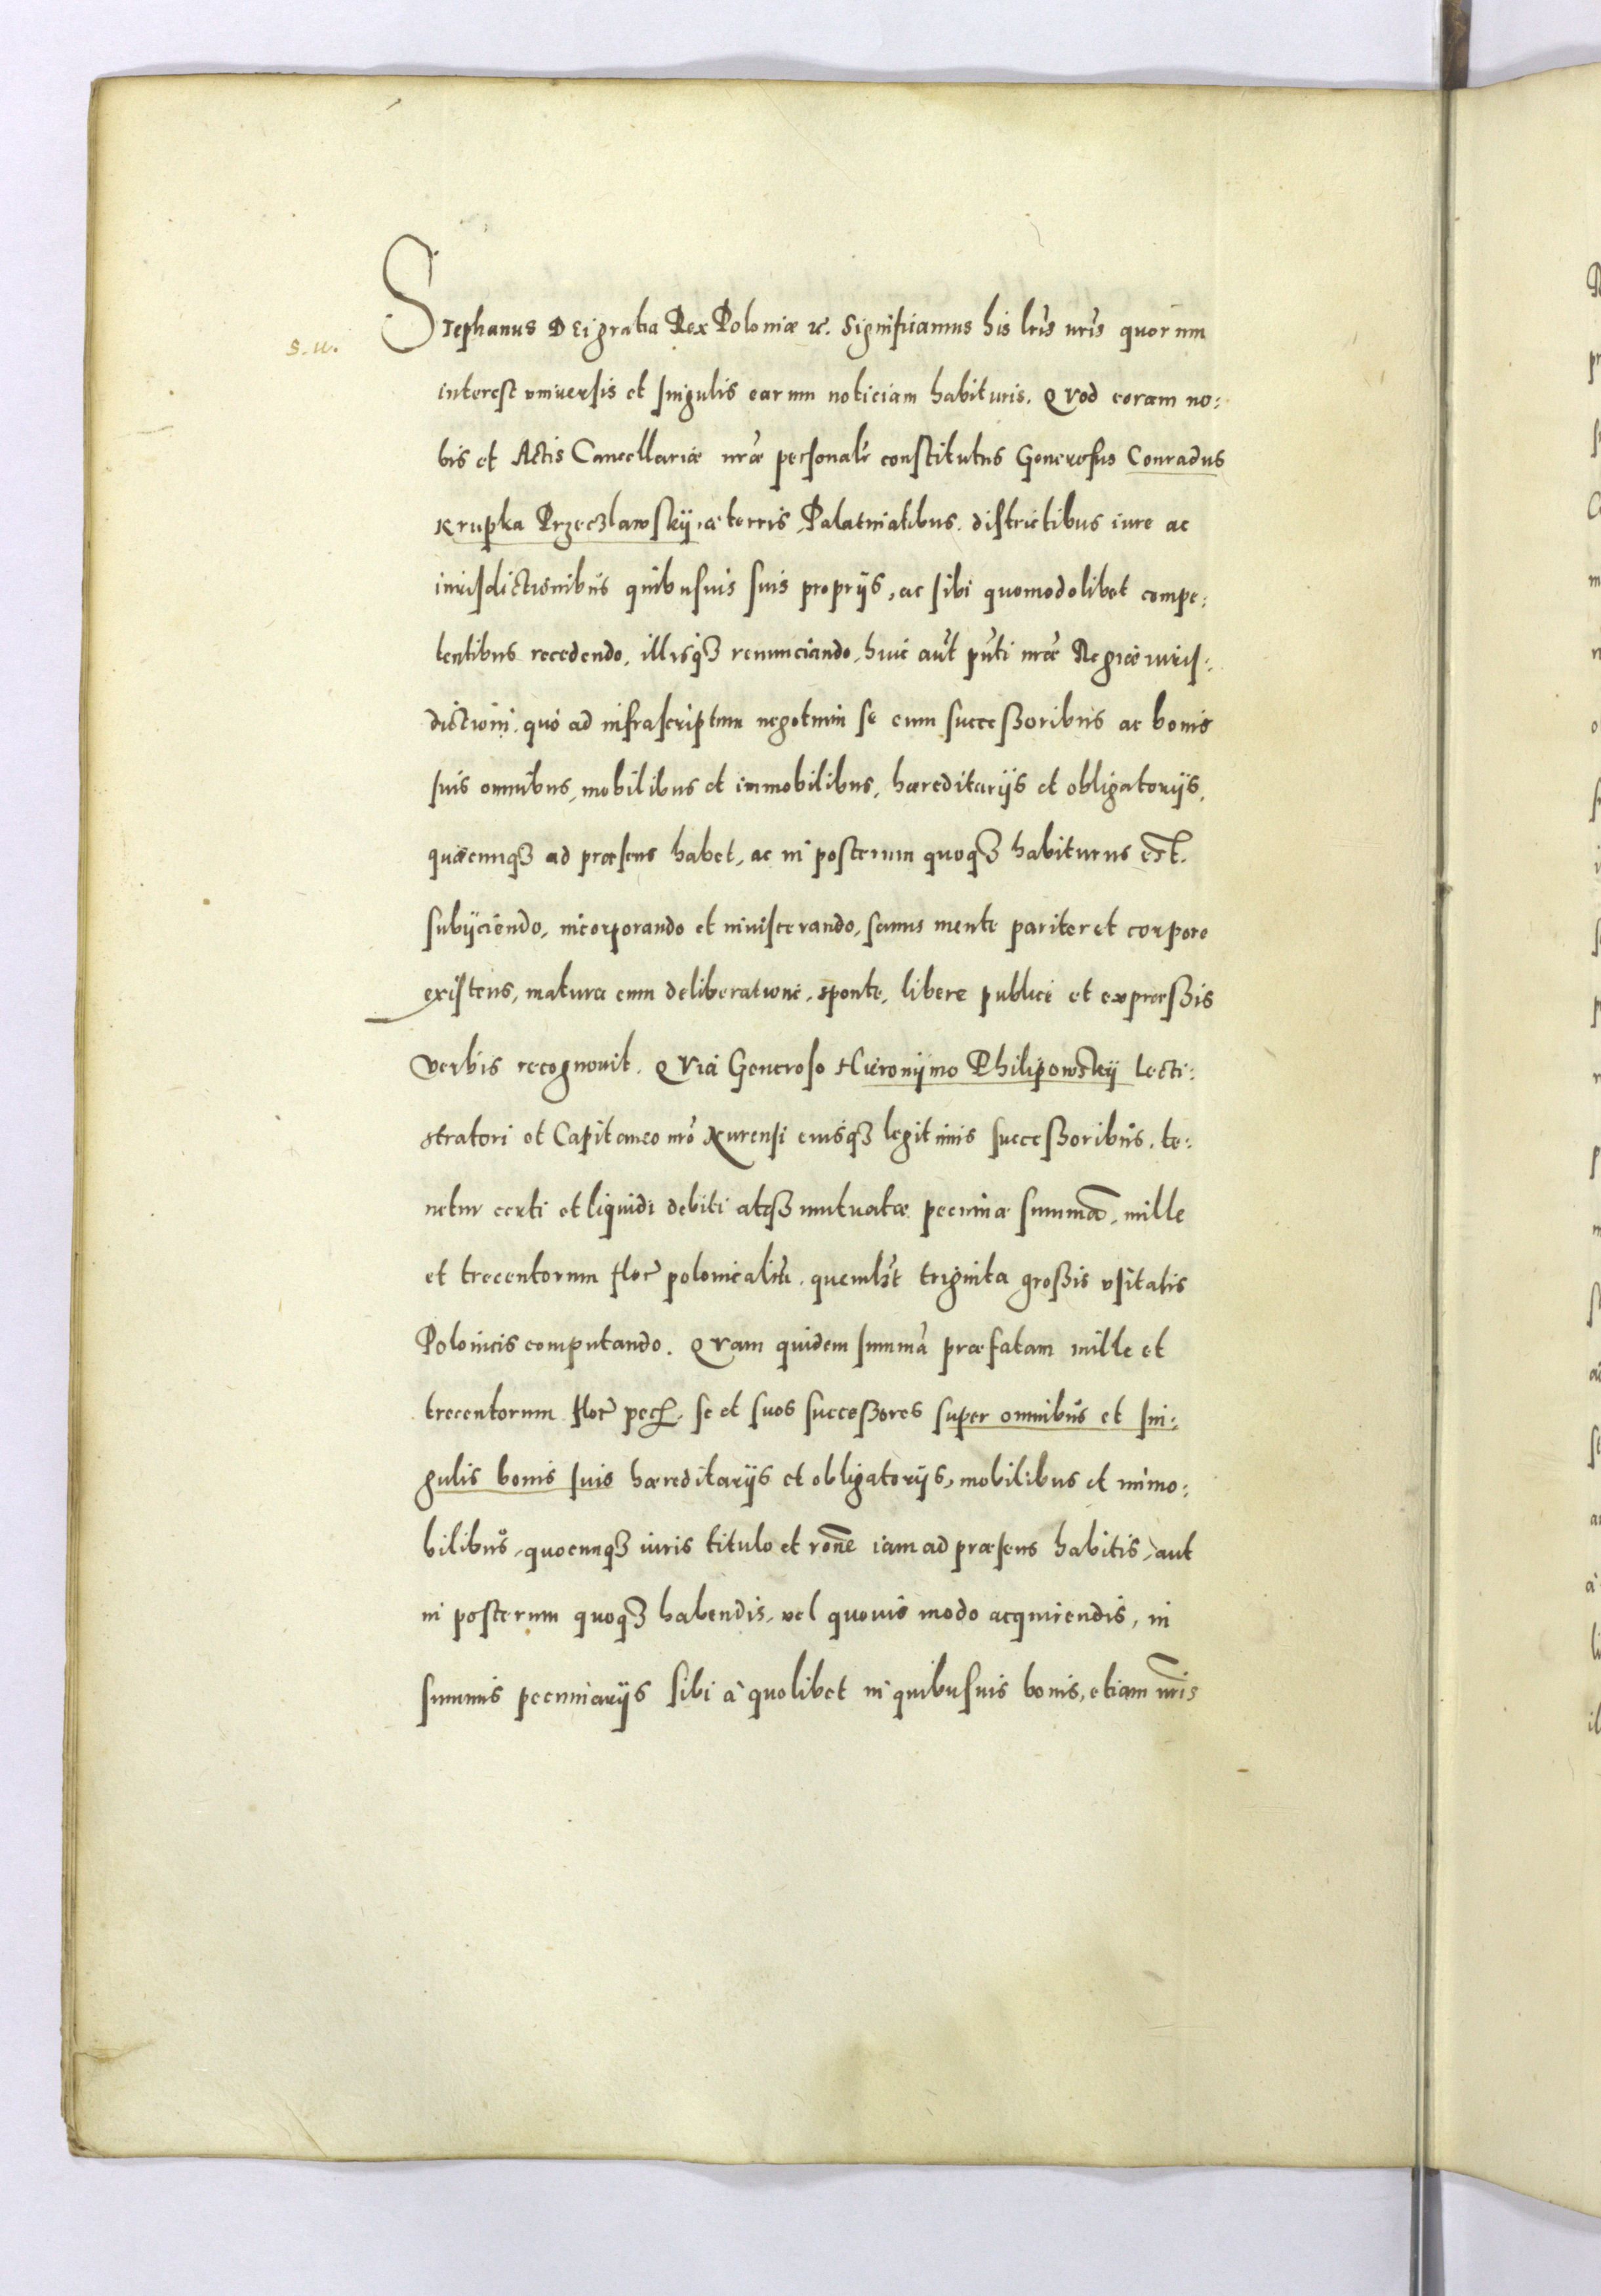 Stephanus DEi gratia Rex Poloniæ etc. Significamus his lr̃is nr̃is quorum
s. w.
interest vniuersis et singulis earum noticiam habituris. QVod coram no:
bis et Actis Cancellariæ nr̃æ personalr̃ constitutus Generosus Conradus
Krupka Przeczlawskij, à terris Palatinatibus. districtibus iure ac
iurisdictionibus quibusuis suis proprijs, ac sibi quomodolibet compe:
tentibus recedendo, illisqʒ renunciando, huic aũt pñti nr̃æ Regiæ iuris:
dictioni. quò ad infrascriptum negotium se cum successoribus ac bonis
suis omnibus, mobilibus et immobilibus, hæreditarijs et obligatorijs,
quæcunqʒ ad præsens habet, ac in posterum quoqʒ habiturus est.
subijciendo, incorporando et inuiscerando, sanus mente pariter et corpore
existens, matura cum deliberatione, sponte, libere publice et expressis
verbis recognouit. QVia Generoso Hieronijmo Philipowskij lecti:
stratori et Capitaneo nr̃o Xurensi eiusqʒ legitimis successoribus. te:
netur certi et liquidi debiti atqʒ mutuatæ pecuniæ summã, mille
et trecentorum flor̃ polonicaliũ. quemlibt̃ triginta grossis vsitatis
Polonicis computando. QVam quidem summã præfatam mille et
trecentorum flor̃ pecʒ, se et suos successores super omnibus et sin:
gulis bonis suis hæreditarijs et obligatorijs, mobilibus et immo:
bilibus, quocunqʒ iuris titulo et rõne iam ad præsens habitis, aut
in posterum quoqʒ habendis, vel quouis modo acquirendis, in
summis pecuniarijs sibi à quolibet in quibusuis bonis, etiam nr̃is